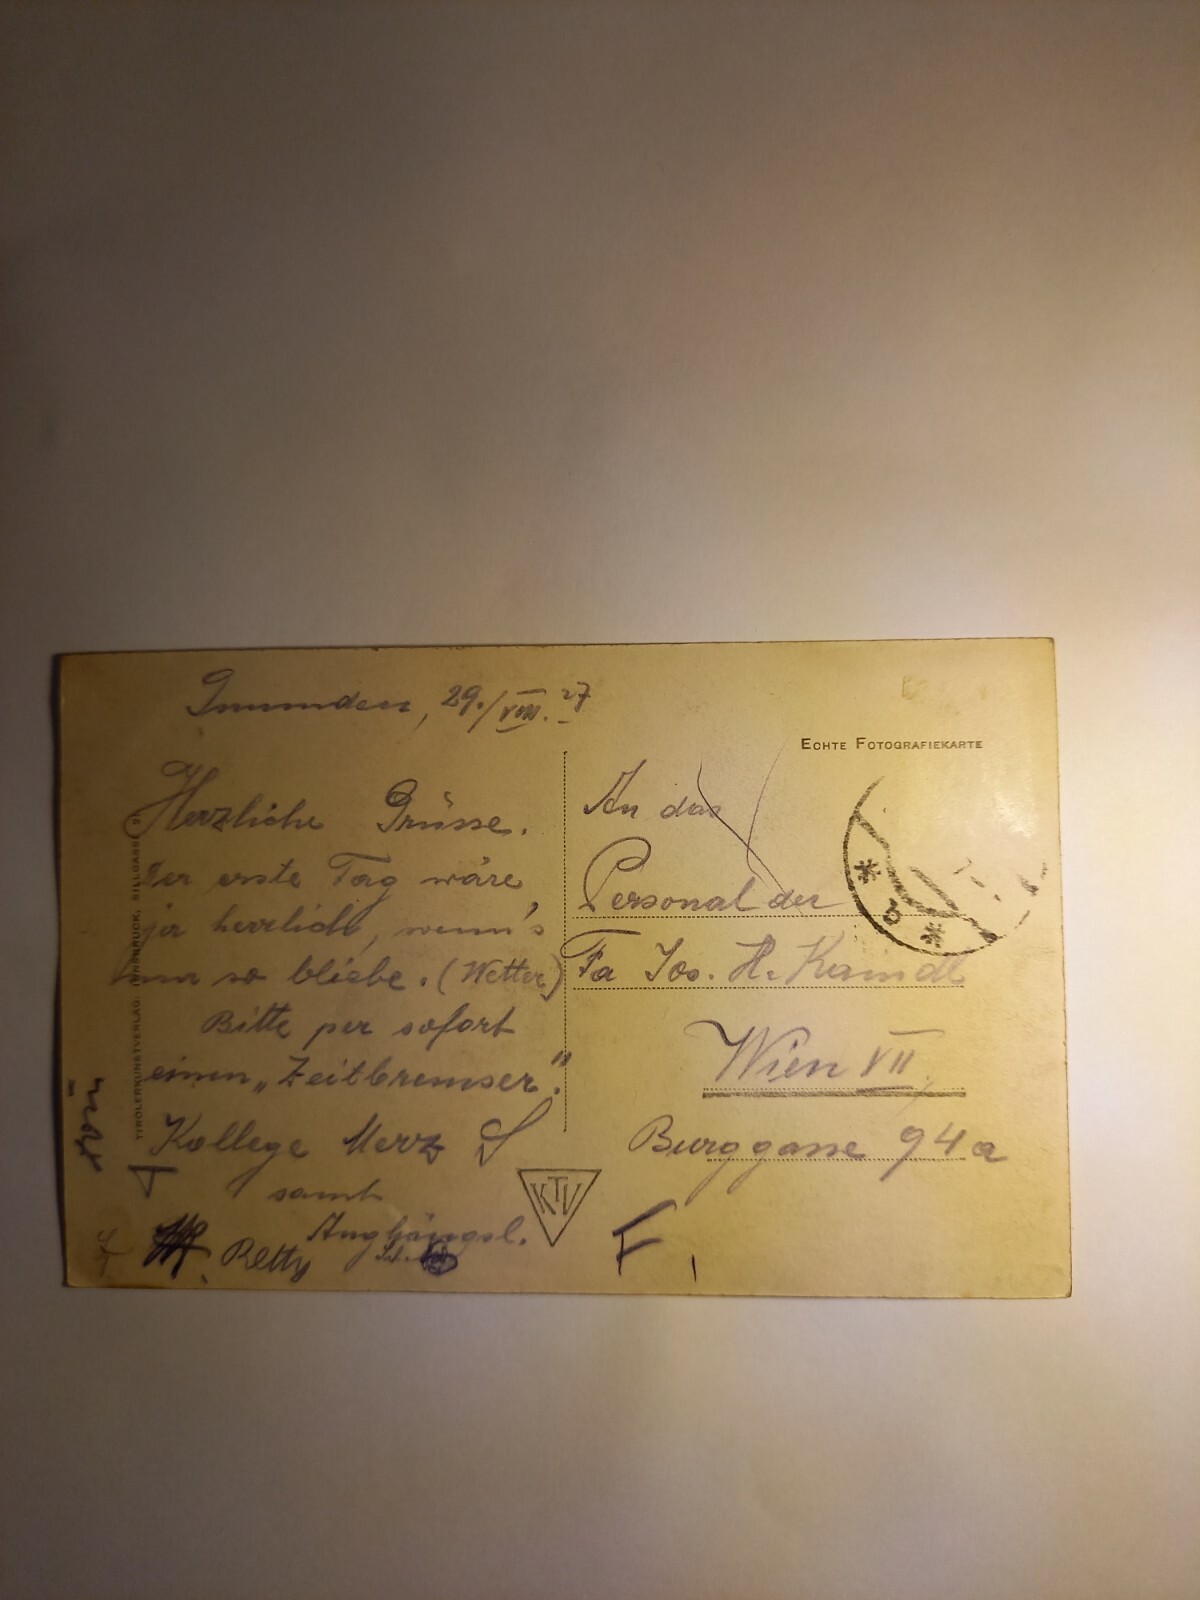 Gmunden, 29./VIII. 27
Herzliche Grüsse.
Der erste Tag wäre
ja herrlich, wenn's
nur so bliebe. (Wetter)
Bitte per sofort
einen „Zeitbremser."
Kollege Merz
samt
Anghängsl.
Betty
TIROLERKUNSTVERLAG, INNSBRUCK, SILLGASSE
KTV
ECHTE FOTOGRAFIEKARTE
An das
Personal der
Fa Jos. H. Kamdl
Wien VII.
Burggasse 94a
F.